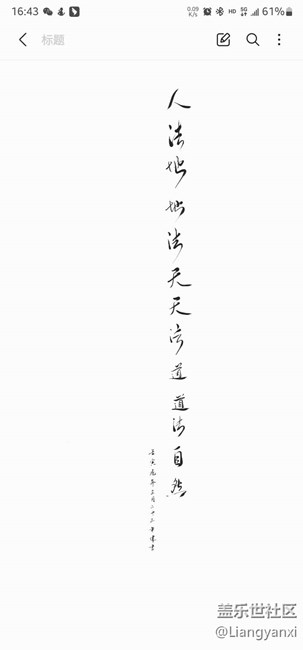 16:43
0.09 K/s HD 5G 61%
标题
人法地地法天天法道道法自然
盖乐世社区
@Liangyanxi